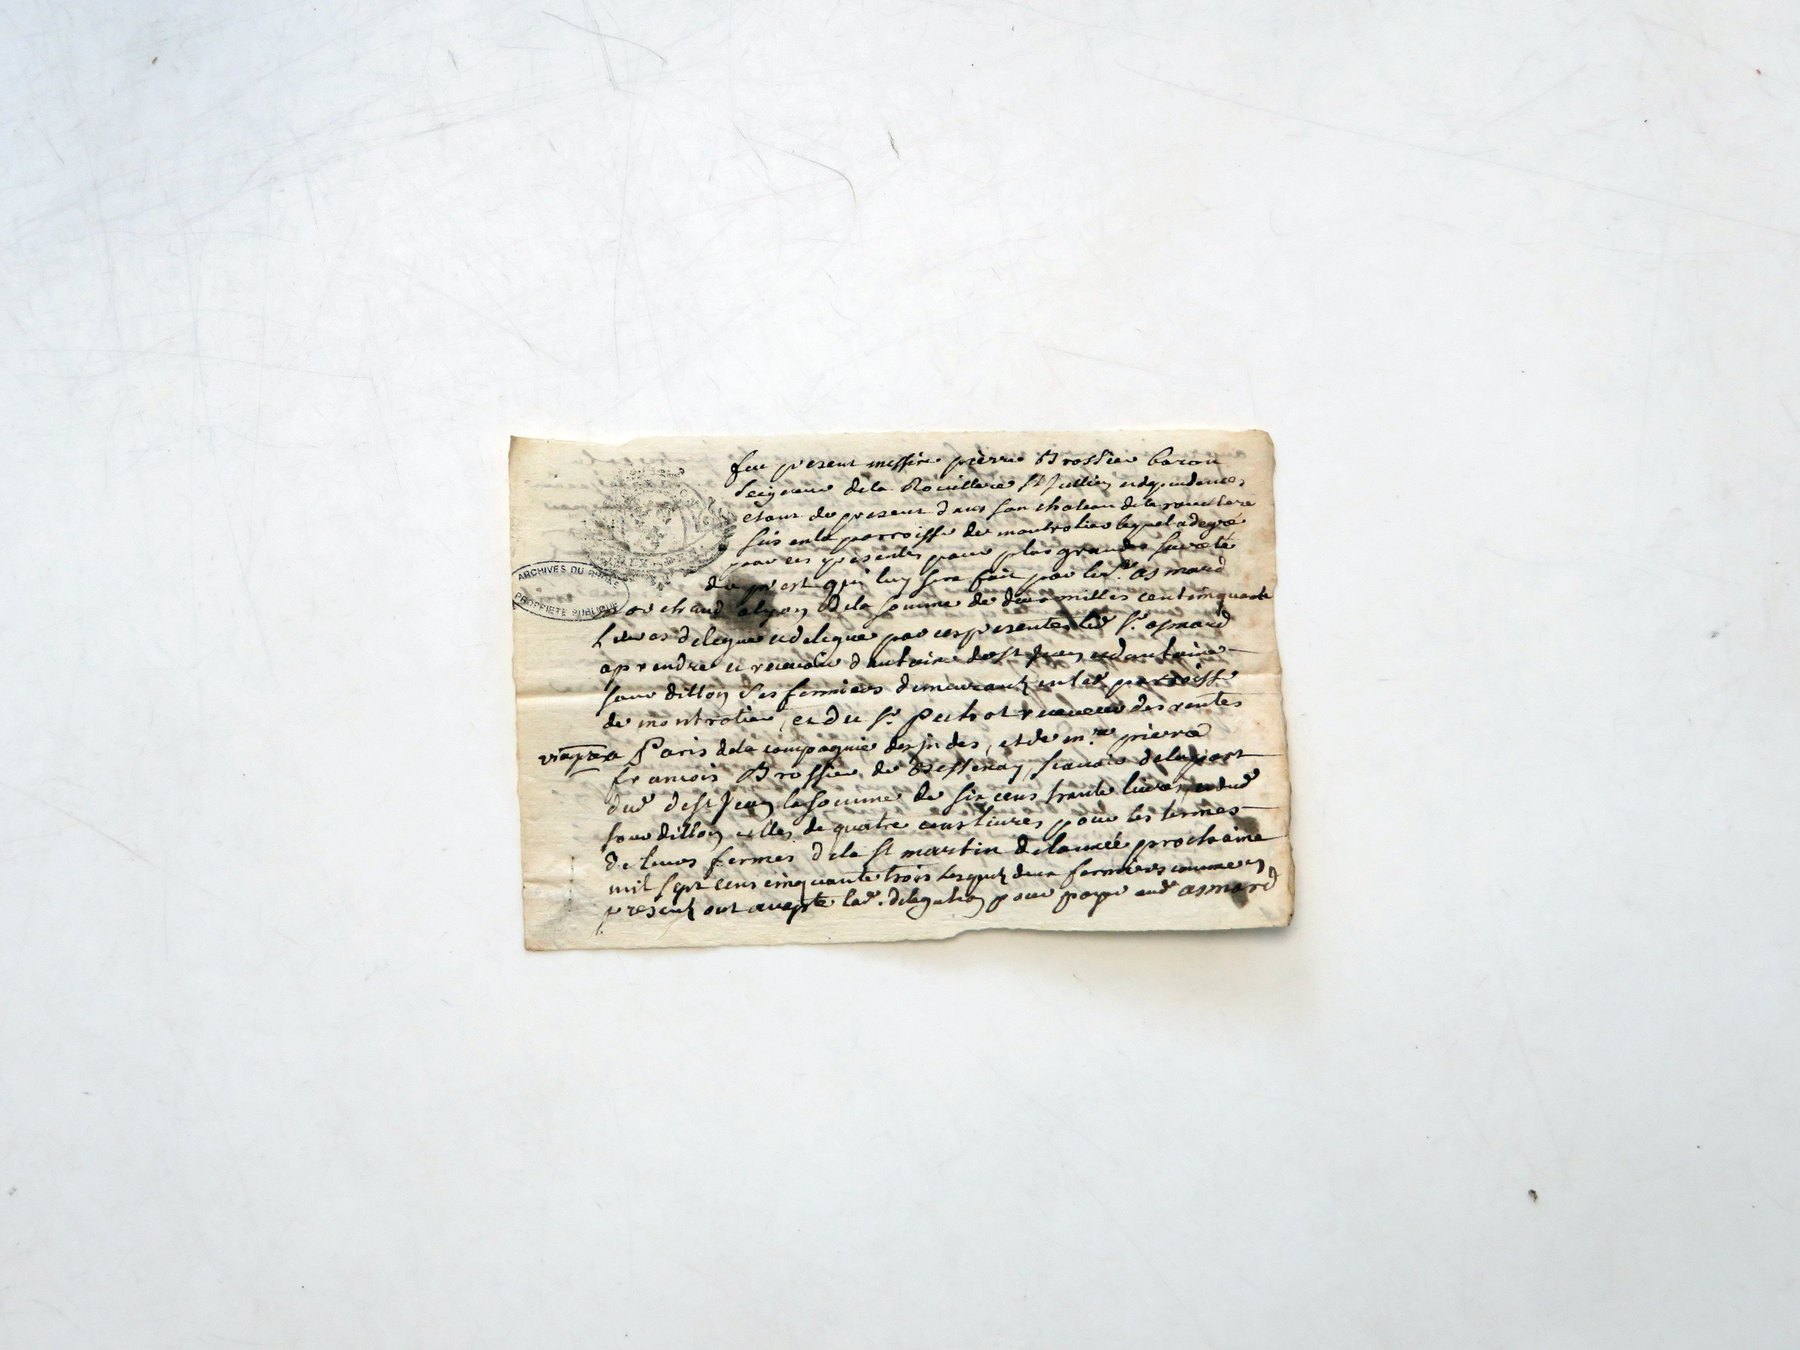 fut present messire pierre Brossier baron
Seigneur de la Roüillere St Jullien et dependences
etant de present dans son chateau de la rouillere
sis en la parroisse de montrotier lequel a de gré
par ces presentes pour plus grande sureté
du prest qui luy sera fait par le sr. asmard
marchand a lyon de la somme de deux milles cent cinquante
Livres delegue et delegue par ces presentes led sr. asmard
a prendre et recevoir d antoine de st Jean et d antoine
sour dillon ses fermiers demeurantz en lad parroisse
de montrotier, et du sr. receveur des rentes
a Paris de la compagnie des jndes, et de mre pierre
francois Brossier de Bessenay, scavoir de la part
dud de st Jean la somme de six cens trante livres, et dud
sour dillon celles de quatre cens livres pour les termes
de leurs fermes de la st martin de lannée prochaine
mil sept cens cinquante trois lesquelz deux fermiers comme ey
presentz ont accepté lad. delegation pour payer aud asmard
ARCHIVES DU RHÔNE
PROPRIÉTÉ PUBLIQUE